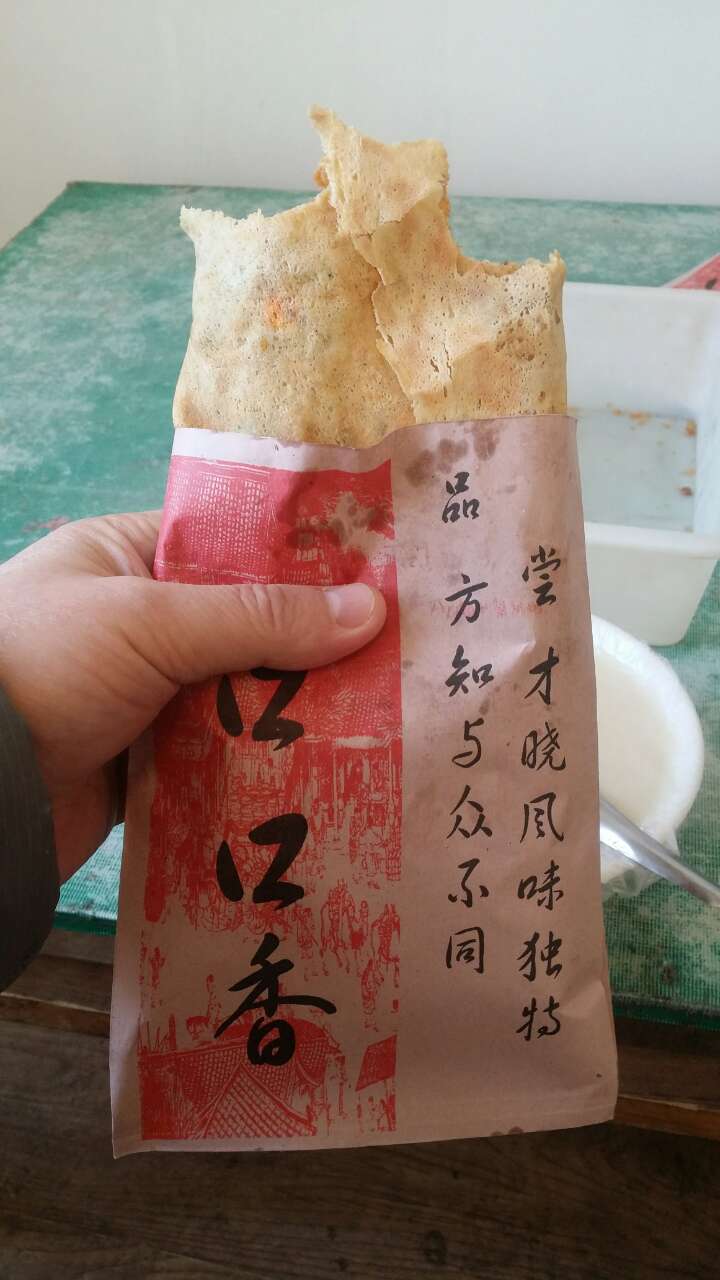 口口香
品 方知与众不同
尝 才晓风味独特